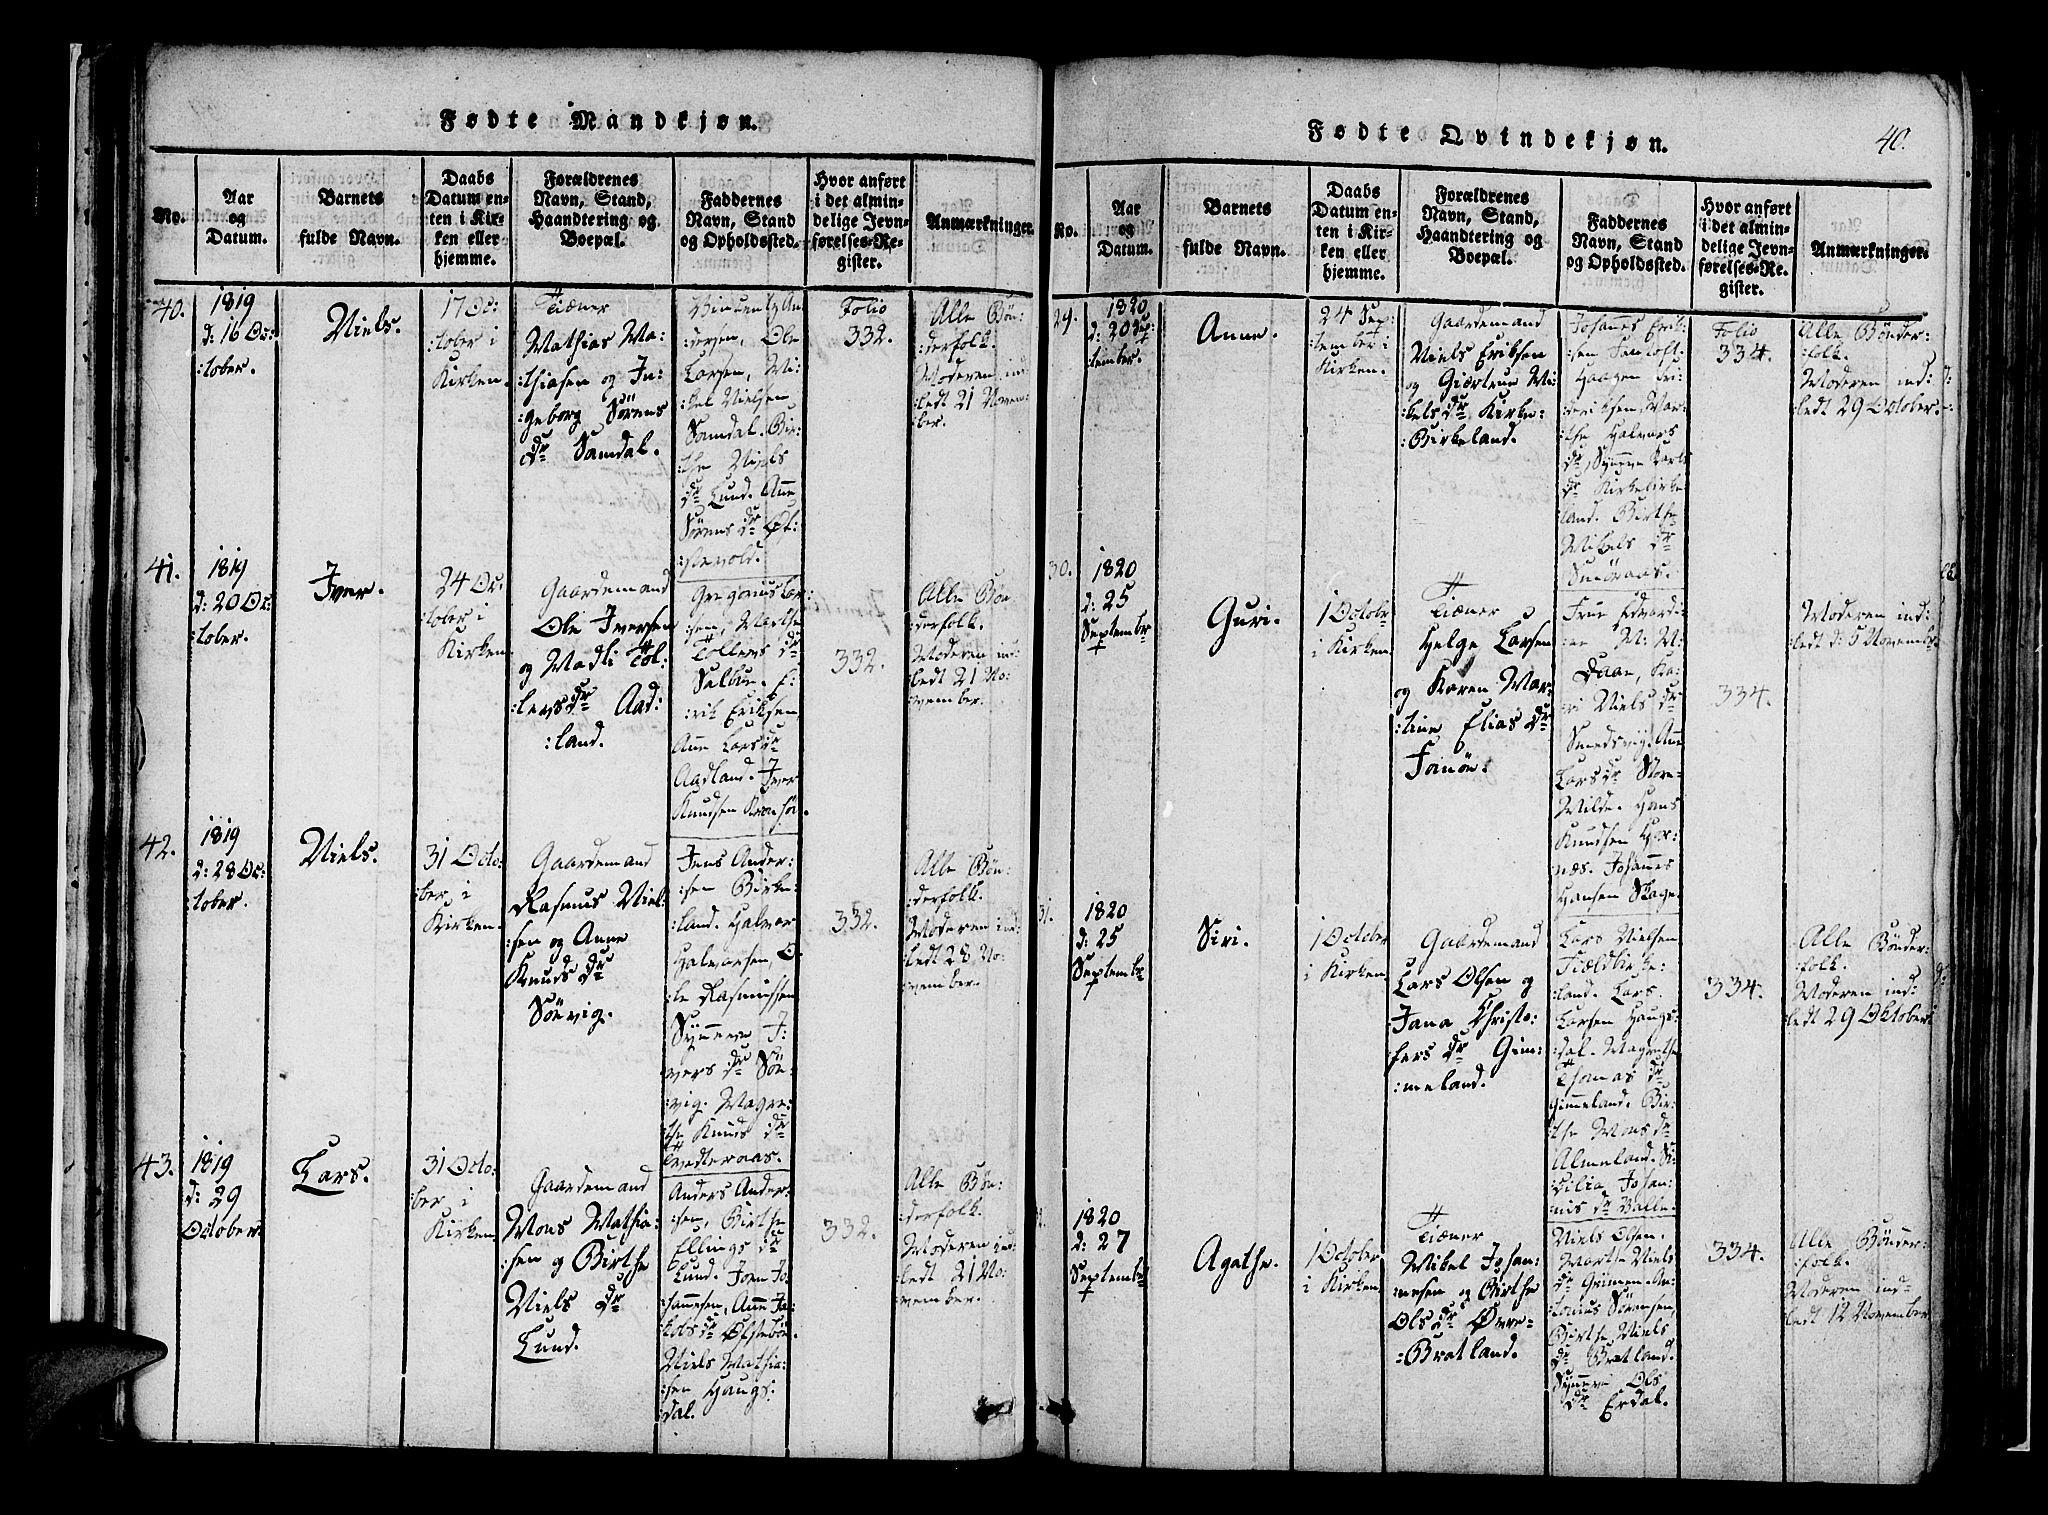 Fødte Mandkjøn.
No.
Aar
og
Datum.
Barnets
fulde Navn.
Daabs
Datum en-
ten i Kir-
ken eller
hjemme.
Forældrenes
Navn, Stand,
Haandtering og
Boepæl.
Faddernes
Navn, Stand
og Opholdssted.
Hvor anført
i det almin-
delige Jevn-
førelses-Re-
gister.
Anmærkninger.
40.
1819
d: 16 Oc:
:tober.
Niels.
17 Oc:
:tober i
Kirken.
Tiæner
Mathias Ma:
:thiasen og In:
:geborg Sörens
dr Samdal.
:dersen, Ole
Larsen, Mi:
:kel Nielsen
Samdal. Bir:
:the Niels
dr Lund. Ane
Sörens dr Øf:
:stevold.
Folio
332.
Alle Bøn:
:derfolk.
Moderen ind:
:ledt 21 Novem:
:ber.
41.
1819
d: 20 Oc:
:tober.
Iver.
24 Oc:
:tober i
Kirken.
Gaardemand
Ole Iversen
og Madli Tol:
:levs dr Aad:
:land.
Gregorius Lar:
:sen, Marthe
Tollevs dr
Salbu. E:
:rik Eriksen,
Ane Lars dr
Aadland. Iver
Knudsen
332.
Alle Bøn
:derfolk.
Moderen ind:
:ledt 21 No:
:vember.
42.
1819
d: 28 Oc:
:tober.
Niels.
31 Octo:
:ber i
Kirken.
Gaardemand
Rasmus Niel:
:sen og Anne
Knuds dr
Sörvig.
Jens Ander:
:sen Birke:
:land. Halvor
Halvorsen, O:
:le Rasmussen
Synneve I:
:vers dr Sör:
:vig. Magre:
:the Knuds dr
Tvedteraas.
332.
Alle Bøn:
:derfolk.
Moderen ind:
:ledt 28 No:
:vember.
43.
1819
d: 29
October.
Lars.
31 Octo:
:ber i
Kirken.
Gaardemand
Mons Mathia:
:sen og Birthe
Niels dr
Lund.
Anders Ander:
:sen, Birthe
Ellings dr
Lund. Joen Jo:
:hannesen, Ane Ja:
:kobs dr Øfstebøe.
Niels Mathia:
:sen Haugs:
:dal.
332.
Alle Bøn:
:derfolk.
Moderen ind:
:ledt 21 No:
:vember.
Fødte Qvindekjøn.
40.
No.
Aar
og
Datum.
Barnets
fulde Navn.
Daabs
Datum en-
ten i Kir-
ken eller
hjemme.
Forældrenes
Navn, Stand,
Haandtering og
Boepæl.
Faddernes
Navn, Stand
og Opholdssted.
Hvor anført
i det almin-
delige Jevn-
førelses-Re-
gister.
Anmærkninger.
29.
1820
d: 20 Sep:
:tember.
Anne.
24 Sep:
:tember i
Kirken.
Gaardemand
Niels Eriksen
og Giertrue Mi:
:kels dr Kirke:
:Birkeland.
Johannes Erik:
:sen
Haagen Fri:
:deriksen, Mar:
:the Halvors
dr, Synneve Karls
dr Kirkebirke
:land. Birthe
Mikels dr
Smöraas.
Folio
334.
Alle Bønder:
:folk.
Moderen ind:
:ledt 29 October.
30.
1820
d: 25
Septembr
Guri.
1 October
i Kirken.
Tiæner
Helge Larsen
og Karen Mar:
:tine Elias dr
Tömön.
Frue Edvardi:
:ne M: M:
Daae, Ka:
:ri Niels dr
Smedsvig. Ane
Lars dr Store-
Milde. Hans
Knudsen Hor:
:næs. Johannes
Hansen Skage.
334.
Moderen ind:
:ledt d: 5 Novembr.
31.
1820
d: 25
Septembr
Siri.
1 October
i Kirken.
Gaardemand
Lars Olsen og
Jana Christo:
:fers dr Gim:
:meland.
Lars Nielsen
Fieldbirke:
:land. Lars
Larsen Haugs:
:dal. Magrethe
Thomas dr
Gimmeland. Bir:
:the Mons dr
Almeland. Si:
:cilia Johan:
:nis dr Balle.
334.
Alle Bønder:
:folk.
Moderen ind:
:ledt 29 Oktober
1820
d: 27
Septembr
Agathe.
1 October
i Kirken.
Tiæner
Mikel Johan:
:nesen og Birthe
Ols dr Øvre-
-Bratland.
Niels Olsen.
Marthe Niels
dr Grimen. An:
:tonius Sörensen,
Birthe Niels
dr Bratland.
Synneve Ols
dr Erdal.
334.
Alle Bønder:
:folk.
Moderen ind:
:ledt 12 November